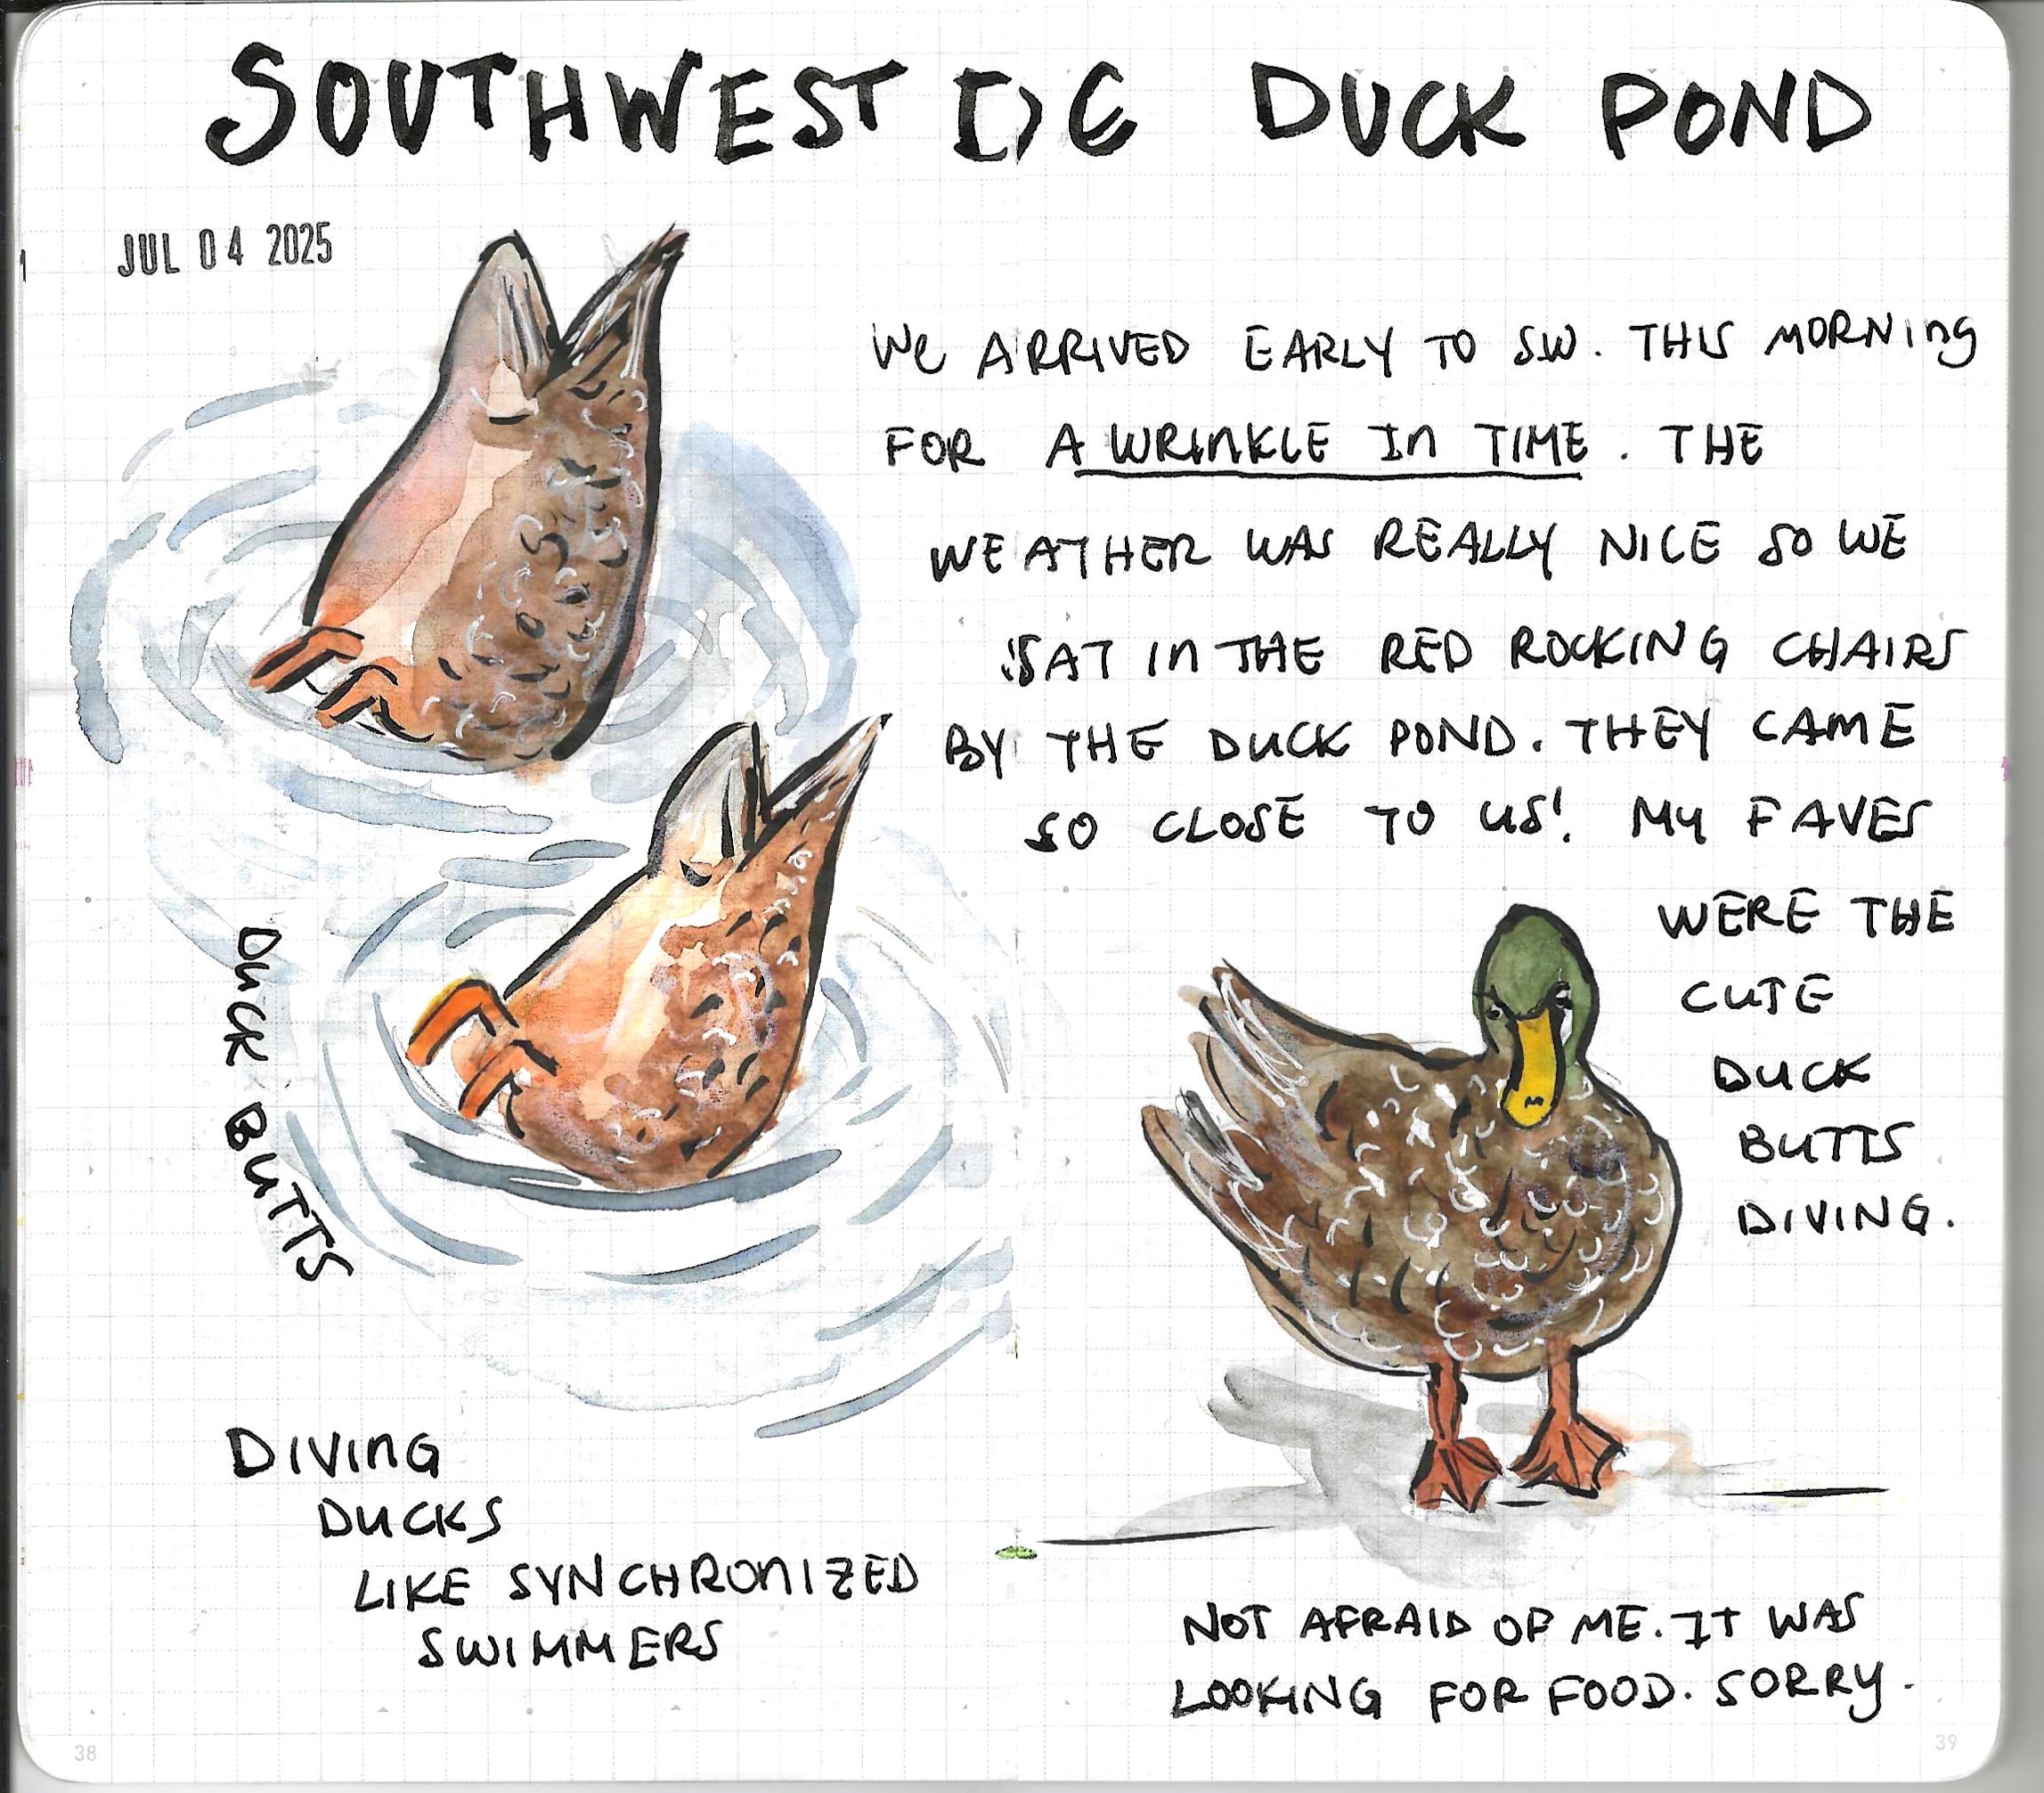 SOUTHWEST DC DUCK POND
JUL 04 2025
WE ARRIVED EARLY TO SW. THIS MORNING
FOR A WRINKLE IN TIME. THE
WEATHER WAS REALLY NICE SO WE
SAT IN THE RED ROCKING CHAIRS
BY THE DUCK POND. THEY CAME
SO CLOSE TO US! MY FAVES
WERE THE
CUTE
DUCK
BUTTS
DIVING.
DUCK BUTTS
DIVING
DUCKS
LIKE SYNCHRONIZED
SWIMMERS
NOT AFRAID OF ME. IT WAS
LOOKING FOR FOOD. SORRY.
38
39